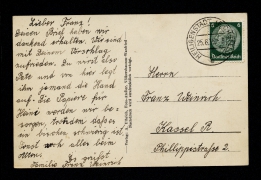 Lieber Franz!
Deinen Brief haben wir
dankend erhalten. Wir sind
mit Deinem Vorschlag
zufrieden. Du wirst also
Pate und von hier legt
ihn jemand die Hand
auf. Die Papiere für
Heinz werden wir be-
sorgen, trotzdem dass es
ein bischen schwierig ist.
Sonst noch alles beim
alten. Es grüßt
Familie Franz Weinrich
Deutsches Reich
Herrn
Franz Weinrich
Kassel R
Phillippistraße 2.